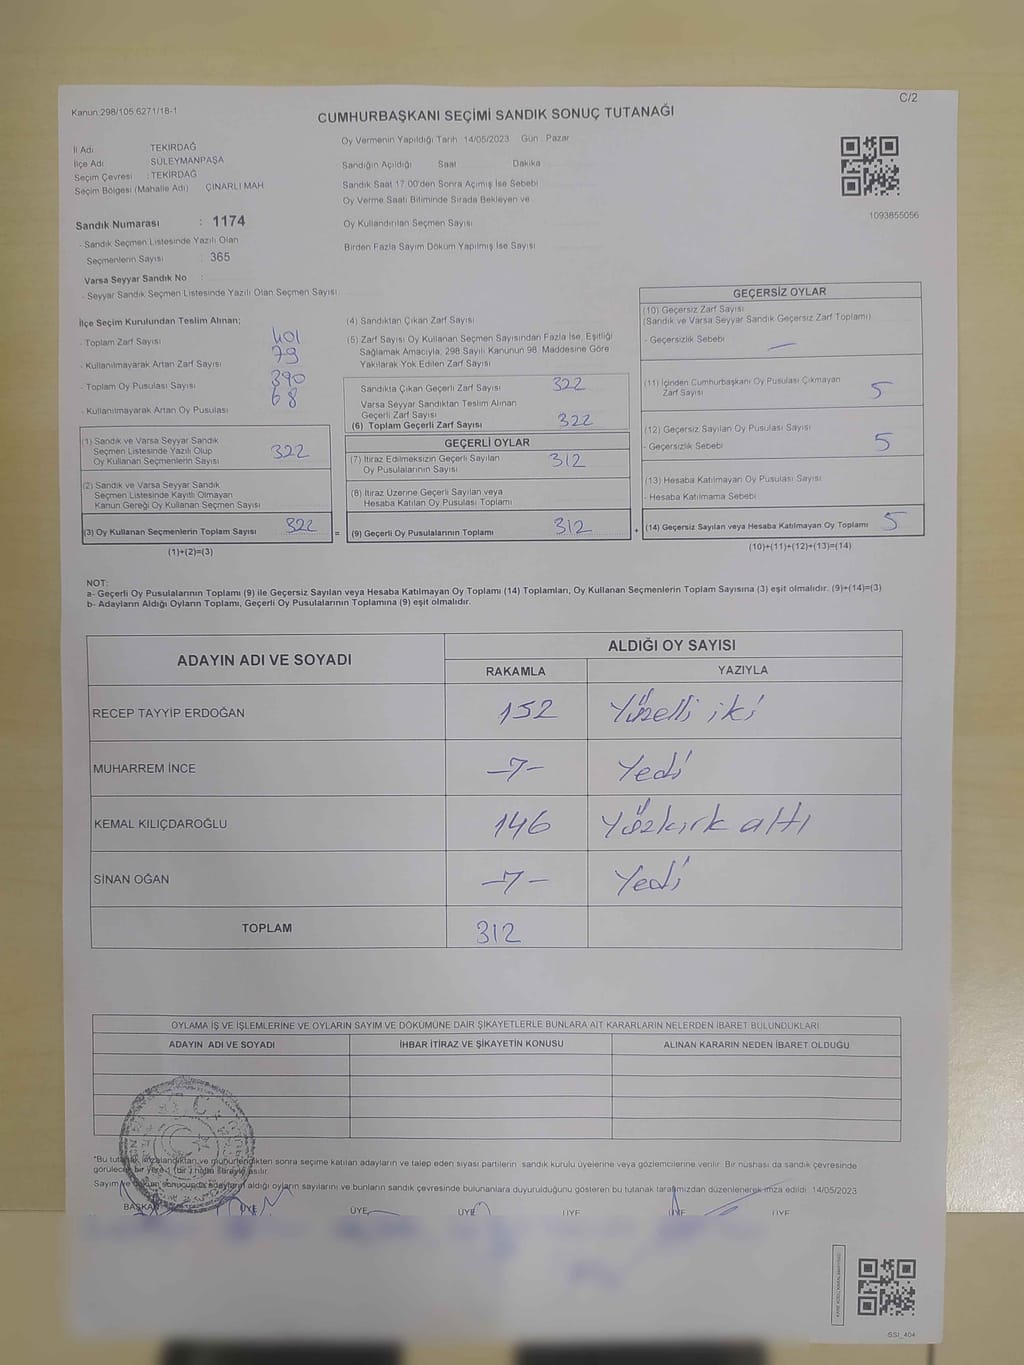 Kanun:298/105,6271/18-1
C/2
CUMHURBAŞKANI SEÇİMİ SANDIK SONUÇ TUTANAĞI
Oy Vermenin Yapıldığı Tarih 14/05/2023 Gün : Pazar
İl Adı TEKİRDAĞ
İlçe Adı SÜLEYMANPAŞA
Seçim Çevresi : TEKİRDAĞ
Seçim Bölgesi (Mahalle Adı) ÇINARLI MAH
Sandığın Açıldığı Saat Dakika
Sandık Saat 17.00'den Sonra Açımış İse Sebebi
Oy Verme Saati Bitiminde Sırada Bekleyen ve
Oy Kullandırılan Seçmen Sayısı
Birden Fazla Sayım Döküm Yapılmış İse Sayısı
1093855056
Sandık Numarası : 1174
- Sandık Seçmen Listesinde Yazılı Olan
Seçmenlerin Sayısı : 365
Varsa Seyyar Sandık No :
- Seyyar Sandık Seçmen Listesinde Yazılı Olan Seçmen Sayısı:
İlçe Seçim Kurulundan Teslim Alınan;
- Toplam Zarf Sayısı 401
- Kullanılmayarak Artan Zarf Sayısı 79
- Toplam Oy Pusulası Sayısı 390
- Kullanılmayarak Artan Oy Pusulası 68
(1) Sandık ve Varsa Seyyar Sandık
Seçmen Listesinde Yazılı Olup
Oy Kullanan Seçmenlerin Sayısı 322
(2) Sandık ve Varsa Seyyar Sandık
Seçmen Listesinde Kayıtlı Olmayan
Kanun Gereği Oy Kullanan Seçmen Sayısı
(3) Oy Kullanan Seçmenlerin Toplam Sayısı 322
(1)+(2)=(3)
=
(4) Sandıktan Çıkan Zarf Sayısı
(5) Zarf Sayısı Oy Kullanan Seçmen Sayısından Fazla İse, Eşitliği
Sağlamak Amacıyla, 298 Sayılı Kanunun 98. Maddesine Göre
Yakılarak Yok Edilen Zarf Sayısı
Sandıkta Çıkan Geçerli Zarf Sayısı 322
Varsa Seyyar Sandıktan Teslim Alınan
Geçerli Zarf Sayısı
(6) Toplam Geçerli Zarf Sayısı 322
GEÇERLİ OYLAR
(7) İtiraz Edilmeksizin Geçerli Sayılan
Oy Pusulalarının Sayısı 312
(8) İtiraz Üzerine Geçerli Sayılan veya
Hesaba Katılan Oy Pusulası Toplamı
(9) Geçerli Oy Pusulalarının Toplamı 312
+
GEÇERSİZ OYLAR
(10) Geçersiz Zarf Sayısı
(Sandık ve Varsa Seyyar Sandık Geçersiz Zarf Toplamı)
- Geçersizlik Sebebi —
(11) İçinden Cumhurbaşkanı Oy Pusulası Çıkmayan
Zarf Sayısı 5
(12) Geçersiz Sayılan Oy Pusulası Sayısı
- Geçersizlik Sebebi 5
(13) Hesaba Katılmayan Oy Pusulası Sayısı
- Hesaba Katılmama Sebebi
(14) Geçersiz Sayılan veya Hesaba Katılmayan Oy Toplamı 5
(10)+(11)+(12)+(13)=(14)
NOT:
a- Geçerli Oy Pusulalarının Toplamı (9) ile Geçersiz Sayılan veya Hesaba Katılmayan Oy Toplamı (14) Toplamları, Oy Kullanan Seçmenlerin Toplam Sayısına (3) eşit olmalıdır. (9)+(14)=(3)
b- Adayların Aldığı Oyların Toplamı, Geçerli Oy Pusulalarının Toplamına (9) eşit olmalıdır.
ADAYIN ADI VE SOYADI
ALDIĞI OY SAYISI
RAKAMLA YAZIYLA
RECEP TAYYİP ERDOĞAN 152 Yüzelli iki
MUHARREM İNCE -7- Yedi
KEMAL KILIÇDAROĞLU 146 Yüzkırk altı
SİNAN OĞAN -7- Yedi
TOPLAM 312
OYLAMA İŞ VE İŞLEMLERİNE VE OYLARIN SAYIM VE DÖKÜMÜNE DAİR ŞİKAYETLERLE BUNLARA AİT KARARLARIN NELERDEN İBARET BULUNDUKLARI
ADAYIN ADI VE SOYADI İHBAR İTİRAZ VE ŞİKAYETİN KONUSU ALINAN KARARIN NEDEN İBARET OLDUĞU
*Bu tutanak imzalandıktan ve mühürlendikten sonra seçime katılan adayların ve talep eden siyasi partilerin sandık kurulu üyelerine veya gözlemcilerine verilir. Bir nüshası da sandık çevresinde
görülecek bir yere 1 (bir) hafta süreyle asılır.
Sayım ve döküm sonucunda adayların aldığı oyların sayılarını ve bunların sandık çevresinde bulunanlara duyurulduğunu gösteren bu tutanak tarafımızdan düzenlenerek imza edildi. 14/05/2023
BAŞKAN ÜYE ÜYE ÜYE ÜYE ÜYE ÜYE
SSI_404